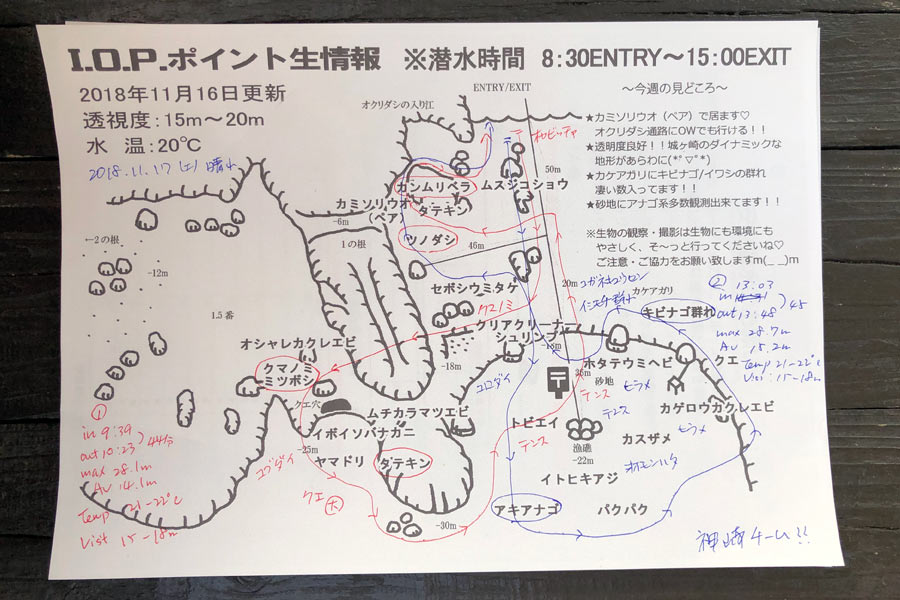 I.O.P.ポイント生情報 ※潜水時間 8:30ENTRY～15:00EXIT
2018年11月16日更新
透視度:15m～20m
水 温:20℃
2018.11.17(土) 晴れ
オクリダシの入り江
ENTRY/EXIT
～今週の見どころ～
★カミソリウオ（ペア）で居ます♡
オクリダシ通路にOWでも行ける！！
★透明度良好！！城ヶ崎のダイナミックな
地形があらわに(*ﾟ▽ﾟ*)
★カケアガリにキビナゴ/イワシの群れ
凄い数入ってます！！
★砂地にアナゴ系多数観測出来てます！！
※生物の観察・撮影は生物にも環境にも
やさしく、そ～っと行ってくださいね♡
ご注意・ご協力をお願い致しますm(_ _)m
オヤビッチャ
50m
カンムリベラ
ムスジコショウ
カミソリウオ
（ペア）
ダテキン
-6m
ツノダシ
1の根
46m
←2の根
-12m
セボシウミタケ
20m
カケアガリ
キビナゴ群れ
クマノミ
1.5番
クリアクリーナー
シュリンプ
-18m
-18m
オシャレカクレエビ
クマノミ
ミツボシ
クエ穴
ムチカラマツエビ
イボイソバナガニ
-25m
ヤマドリ
ダテキン
コブダイ
クエ 大
-30m
コロダイ
ホタテウミヘビ
クエ
砂地
〒
テンス
ヒラメ
カゲロウカクレエビ
テンス
ヒラメ
トビエイ
テンス
漁礁
-22m
カスザメ
イトヒキアジ
アキアナゴ
パクパク
①
in 9:39
out 10:23 44分
max 28.1m
Av 14.1m
Temp 21-22℃
Vist 15-18m
② 13:03
in
out 13:48 45
max 28.7m
Av 15.2m
Temp 21-22℃
Vist: 15-18m
神崎チーム!!